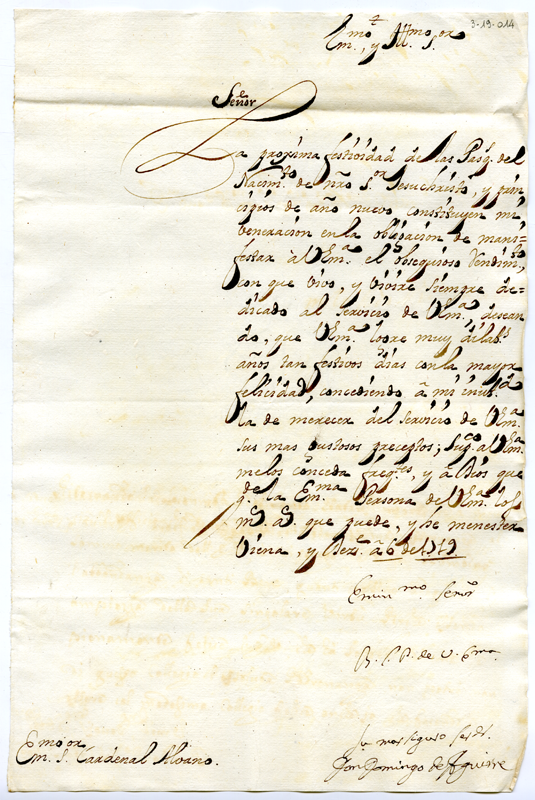 3-19-014
Em.mo y Ill.mo S.or
Señor
La proxima festividad de las Pasq.s del
Nacim.to de nro S.or Jesuchristo, y prin
cipios de año nuevo constituyen mi
veneracion en la obligacion de mani-
festar à VEm.a el obsequioso Rendim.to
con que vivo, y vivirè siempre de=
dicado al servicio de VEm.a, desean
do, que VEm.a logre muy dilat.s
años tan festivos dias con la mayor
felicidad, concediendo à mi inutili.d
la de merecer del servicio de VEm.a
sus mas gustosos preceptos; Sup.co al VEm.a
melos conceda freq.tes, y à Dios que
g.de la Em.ma Persona de VEm.a los
m.s a.s que puede, y he menester
Viena, y Dez.e à 6 de 1719
Emin.mo Señor
B. L. P. de V. Em.a
Su mas seguro ser.or
Don Domingo de Aguirre
Em.mo S.or Cardenal Albano.